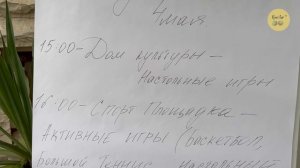 4 мая
15:00 - Дом культуры -
Настольные игры
16:00 - Спорт Площадка -
Активные игры (баскетбол,
большой теннис, настольный